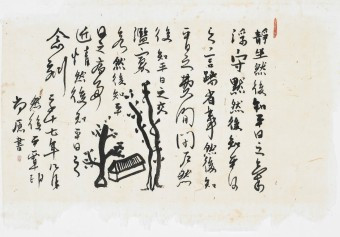 靜坐然後知平日之氣
浮守默然後知平日
之言躁省事然後知
平日之費閒閉戶然
後知平日之交
濫寡
欲然後知平
日之病多
近情然後知平日之
念刻
七年八月
然後
書